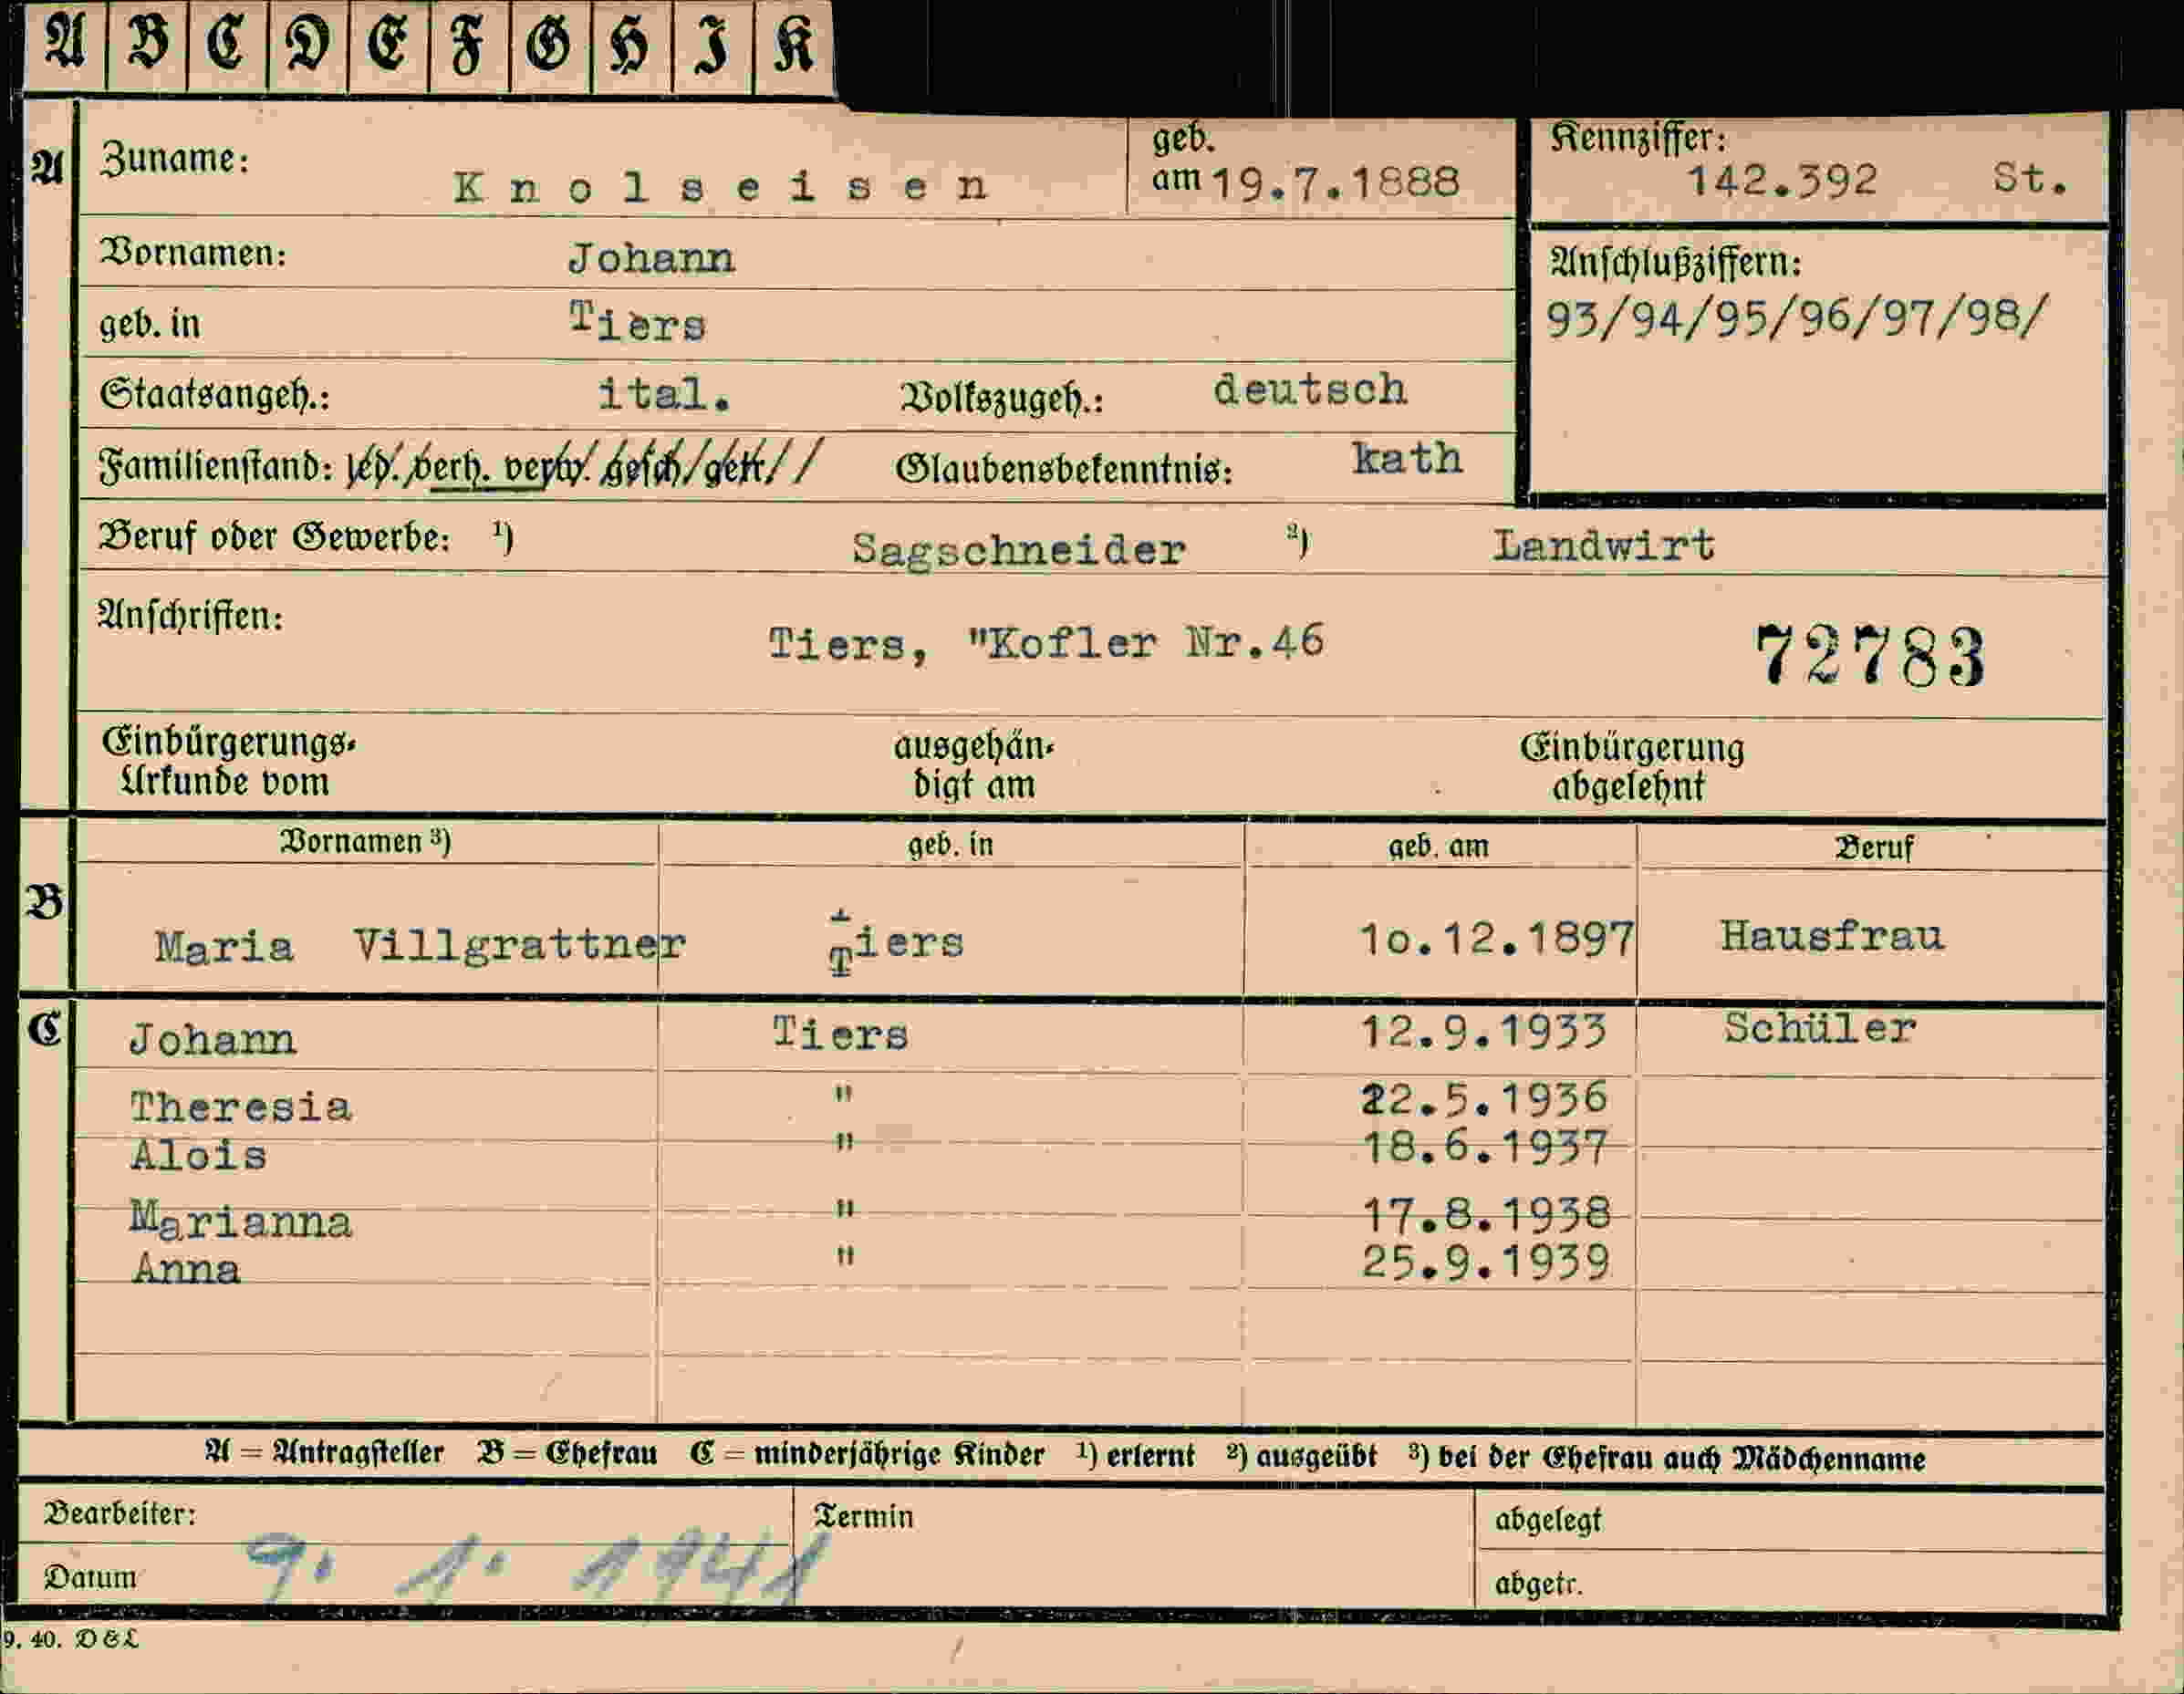 A B C D E F G H I K
A Zuname: Knolseisen geb. am 19.7.1888 Kennziffer: 142.392 St.
Vornamen: Johann Anschlußziffern:
geb. in Tiers 93/94/95/96/97/98/
Staatsangeh.: ital. Volkszugeh.: deutsch
Familienstand: led. verh. verw. gesch/getr// Glaubensbekenntnis: kath
Beruf oder Gewerbe: ¹) Sagschneider ²) Landwirt
Anschriften: Tiers, "Kofler Nr.46 72783
Einbürgerungs- ausgehän- Einbürgerung
Urkunde vom digt am abgelehnt
Vornamen ³) geb. in geb. am Beruf
B Maria Villgrattner Tiers 1o.12.1897 Hausfrau
C Johann Tiers 12.9.1933 Schüler
Theresia " 22.5.1936
Alois " 18.6.1937
Marianna " 17.8.1938
Anna " 25.9.1939
A = Antragsteller B = Ehefrau C = minderjährige Kinder ¹) erlernt ²) ausgeübt ³) bei der Ehefrau auch Mädchenname
Bearbeiter: Termin abgelegt
Datum 9. 1. 1941 abgetr.
9. 40. D & L